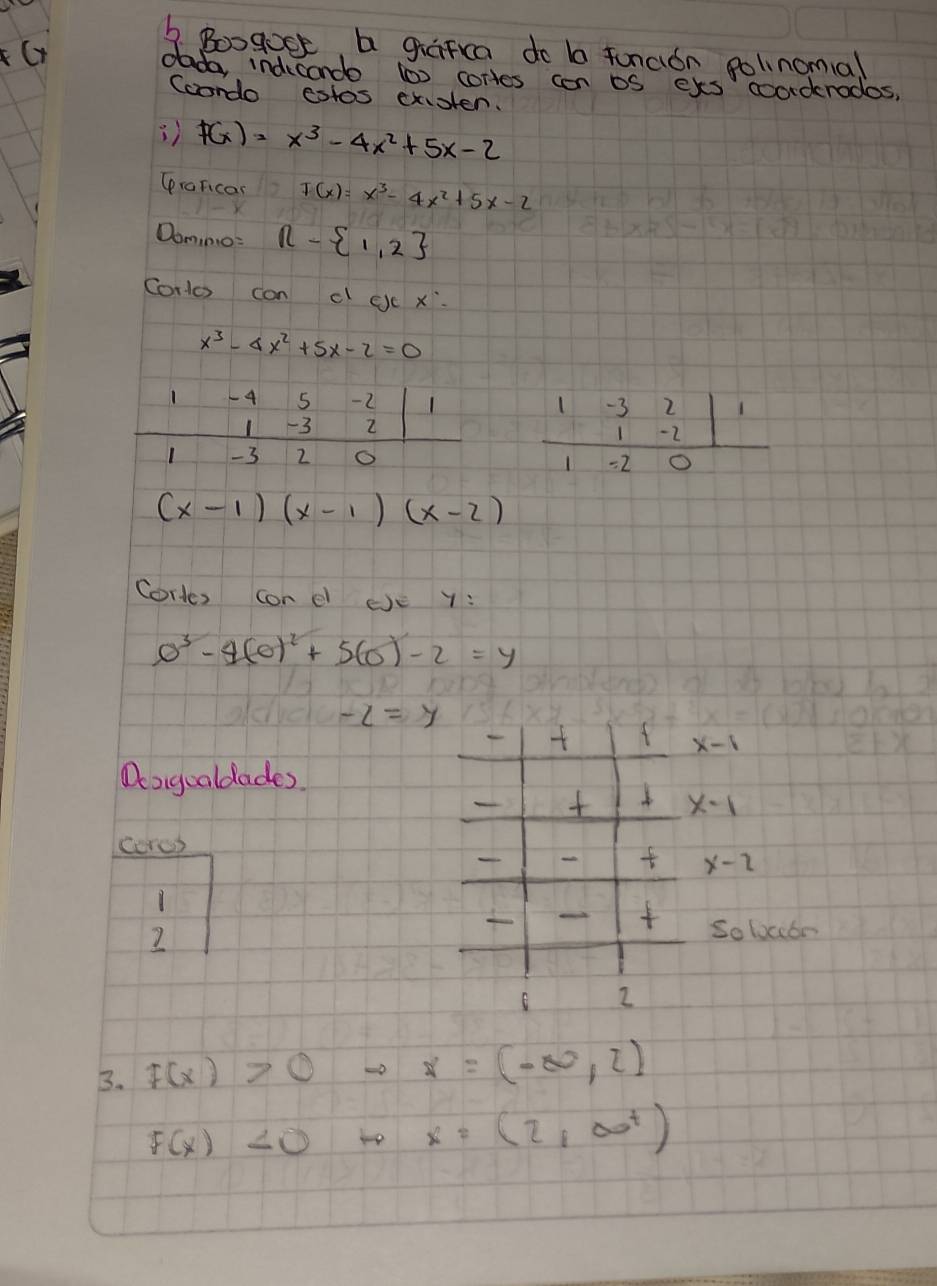 b. Bosquee la gráfica de la función polinomial
dada, indicando los cortes con os ejes coordenados,
Cuando estos existen.
i) f(x) = x³ - 4x² + 5x - 2
Graficar f(x) = x³ - 4x² + 5x - 2
Dominio = R - {1, 2}
Cortes con el eje x:
x³ - 4x² + 5x - 2 = 0
1 -4 5 -2 | 1
1 -3 2
1 -3 2 0
1 -3 2 | 1
1 -2
1 -2 0
(x - 1) (x - 1) (x - 2)
Cortes con el eje y:
0³ - 4(0)² + 5(0) - 2 = y
-2 = y
Desigualdades.
Ceros
1
2
- + + x-1
- + + x-1
- - + x-2
- - + Solución
1 2
3. F(x) > 0 → x = (-∞, 2]
F(x) < 0 → x = (2, ∞⁺)